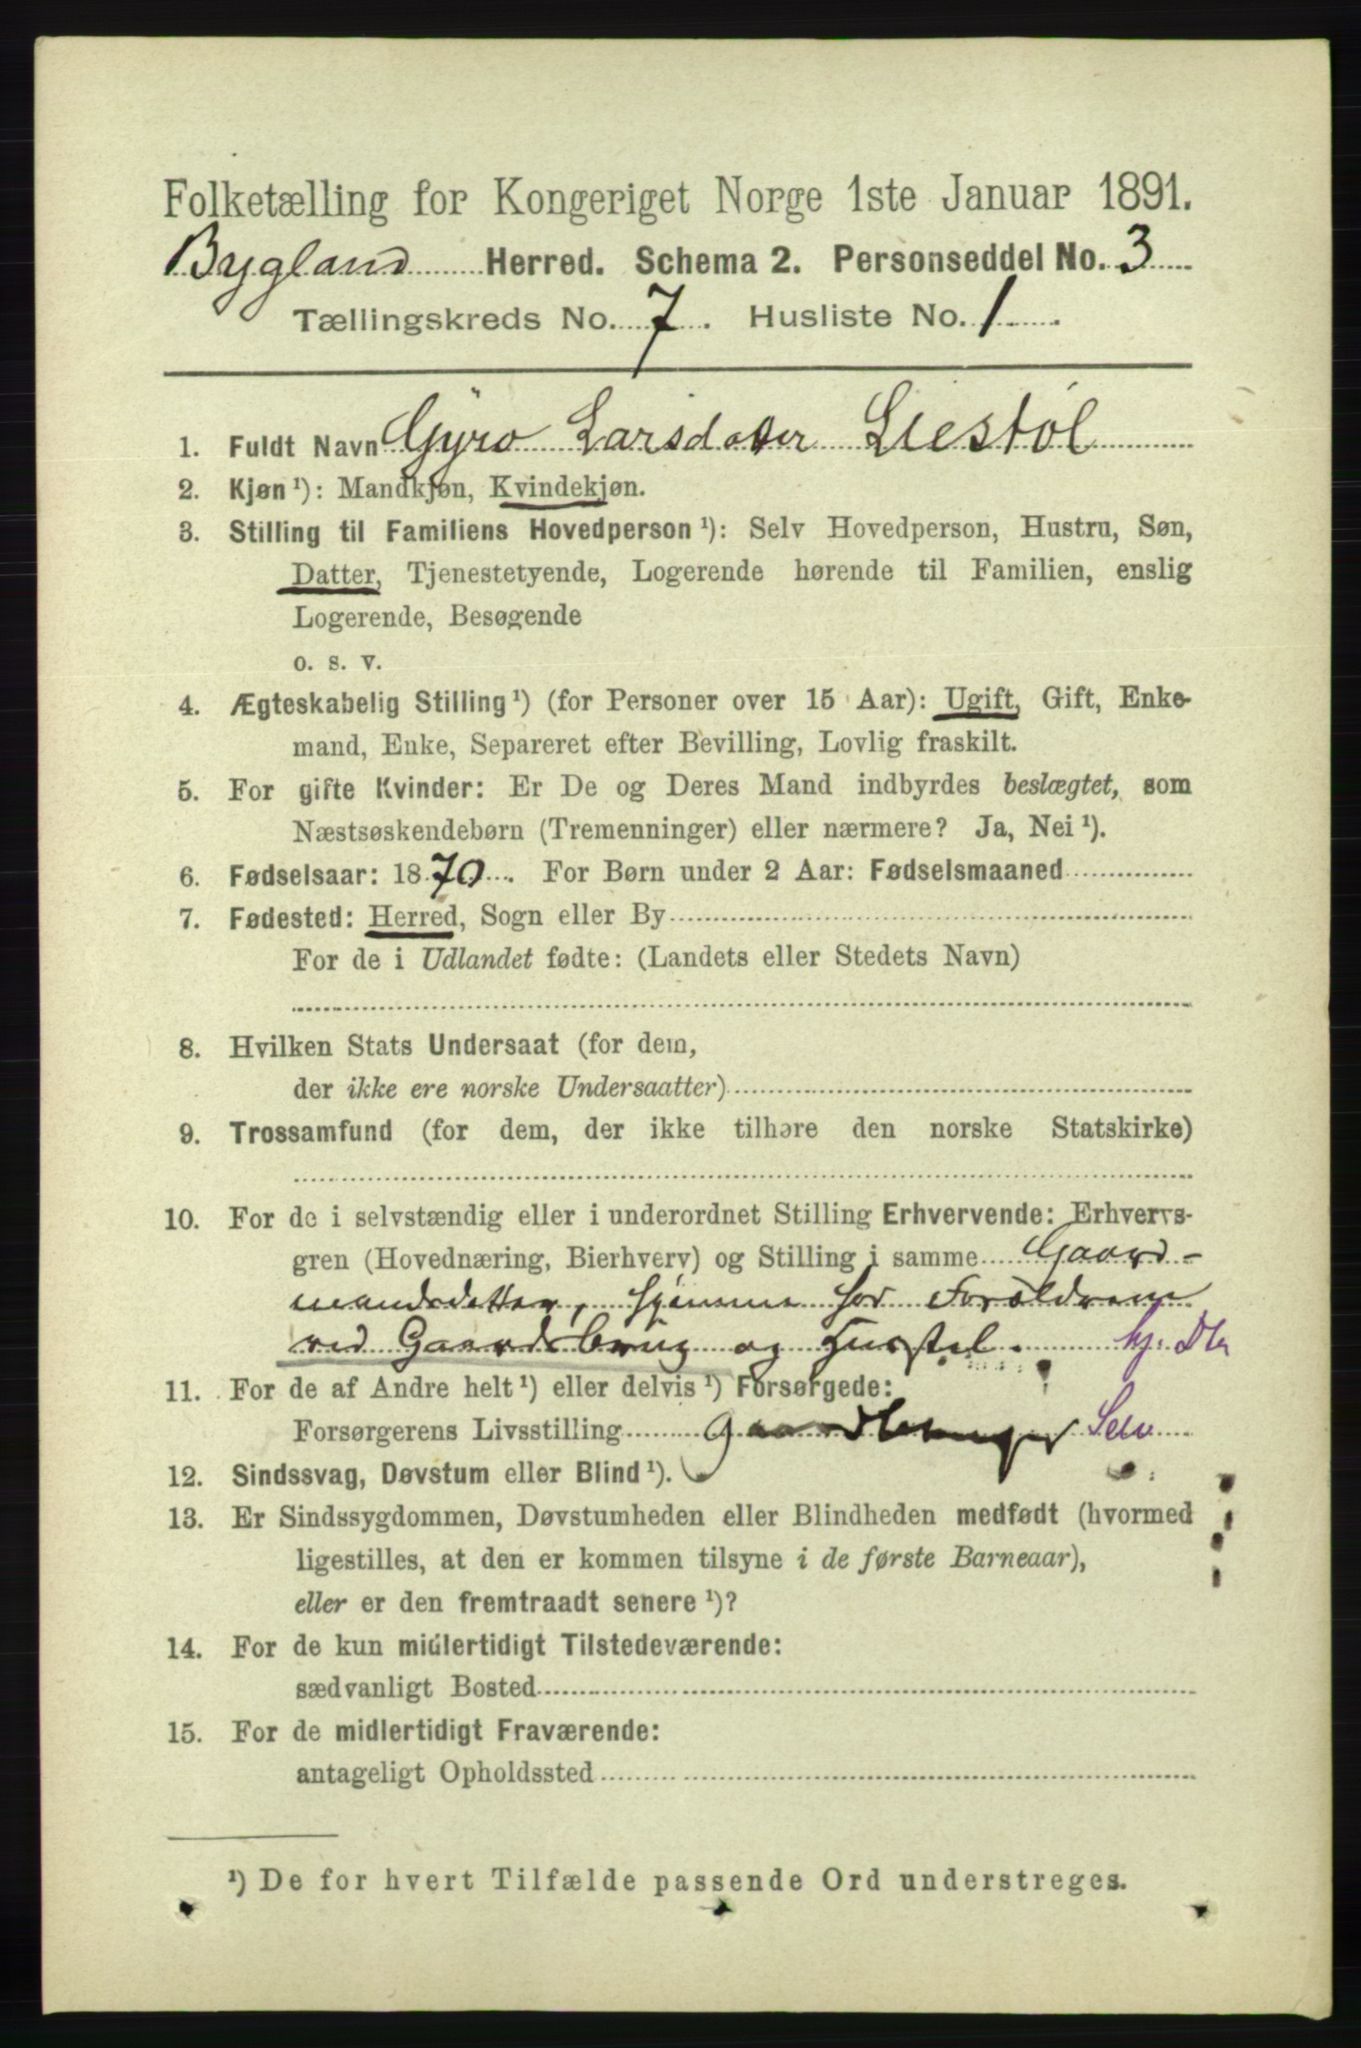 Folketælling for Kongeriget Norge 1ste Januar 1891.
Bygland Herred. Schema 2. Personseddel No. 3
Tællingskreds No. 7. Husliste No. 1
1. Fuldt Navn Gyro Larsdatter Liestøl
2. Kjøn ¹): Mandkjøn, Kvindekjøn.
3. Stilling til Familiens Hovedperson ¹): Selv Hovedperson, Hustru, Søn,
Datter, Tjenestetyende, Logerende hørende til Familien, enslig
Logerende, Besøgende
o. s. v.
4. Ægteskabelig Stilling ¹) (for Personer over 15 Aar): Ugift, Gift, Enke-
mand, Enke, Separeret efter Bevilling, Lovlig fraskilt.
5. For gifte Kvinder: Er De og Deres Mand indbyrdes beslægtet, som
Næstsøskendebørn (Tremenninger) eller nærmere? Ja, Nei ¹).
6. Fødselsaar: 1870. For Børn under 2 Aar: Fødselsmaaned
7. Fødested: Herred, Sogn eller By
For de i Udlandet fødte: (Landets eller Stedets Navn)
8. Hvilken Stats Undersaat (for dem,
der ikke ere norske Undersaatter)
9. Trossamfund (for dem, der ikke tilhøre den norske Statskirke)
10. For de i selvstændig eller i underordnet Stilling Erhvervende: Erhvervs-
gren (Hovednæring, Bierhverv) og Stilling i samme Gaard-
mandsdatter, hjemme hos Forældrene
ved Gaardsbrug og Husstel. hj. Dtr
11. For de af Andre helt ¹) eller delvis ¹) Forsørgede:
Forsørgerens Livsstilling Gaardbruger Selv
12. Sindssvag, Døvstum eller Blind ¹).
13. Er Sindssygdommen, Døvstumheden eller Blindheden medfødt (hvormed
ligestilles, at den er kommen tilsyne i de første Barneaar),
eller er den fremtraadt senere ¹)?
14. For de kun midlertidigt Tilstedeværende:
sædvanligt Bosted
15. For de midlertidigt Fraværende:
antageligt Opholdssted
¹) De for hvert Tilfælde passende Ord understreges.